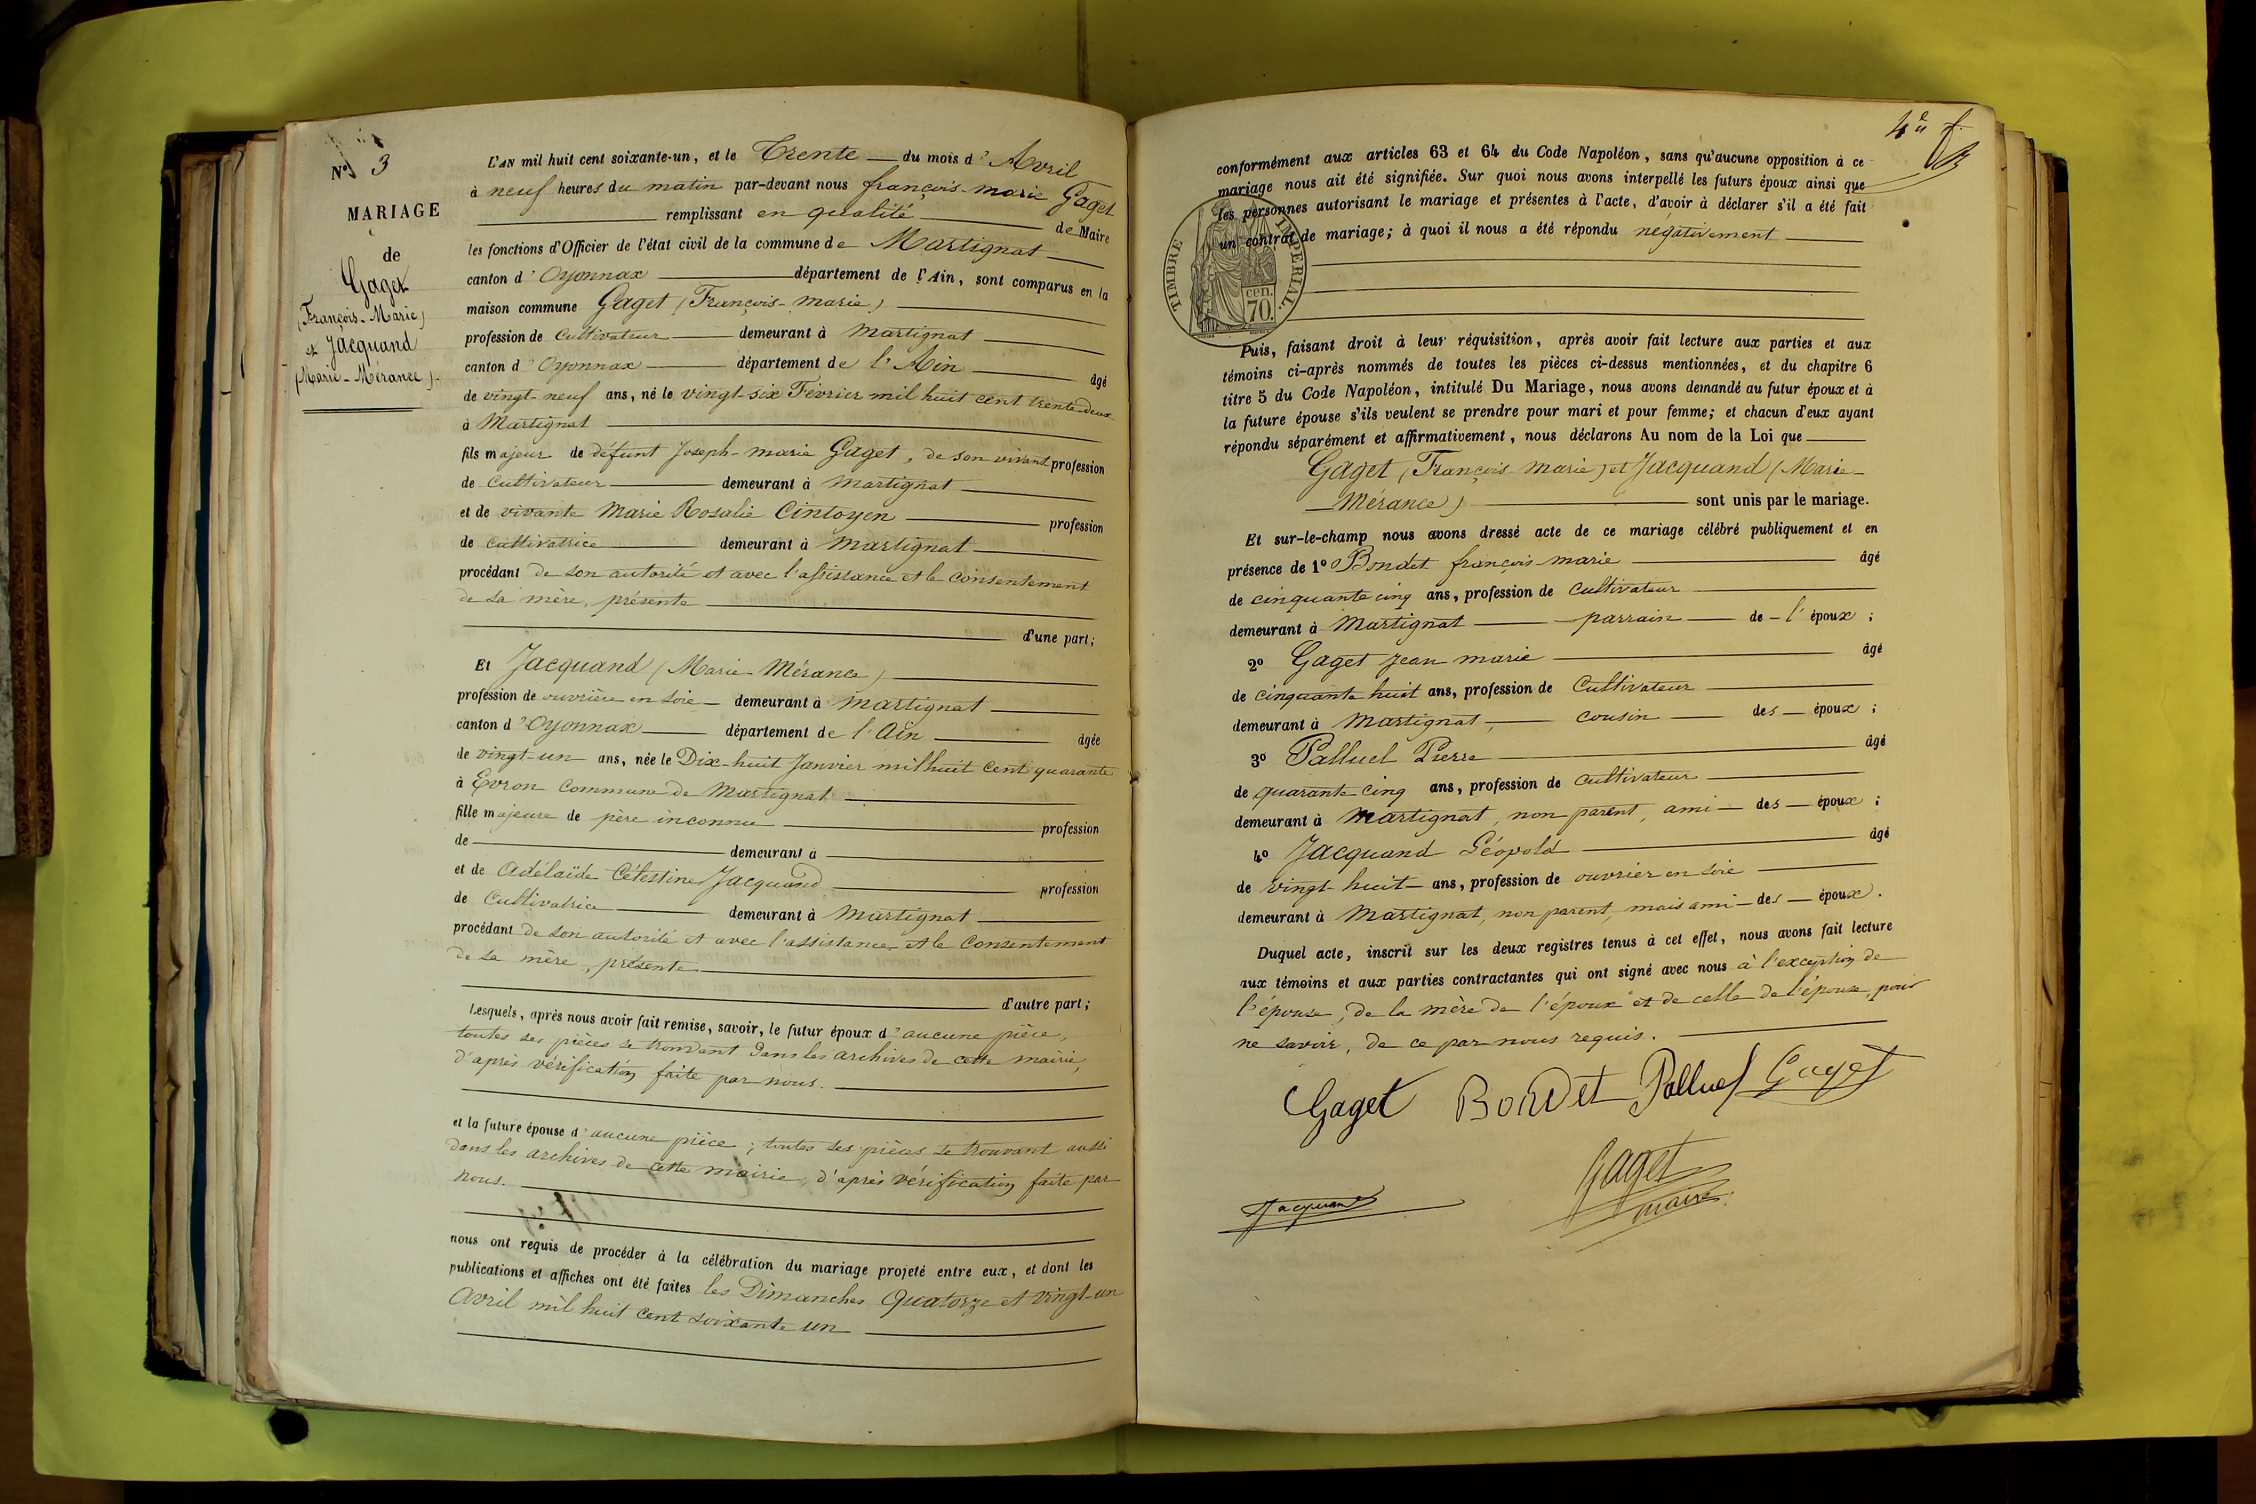 N° 3
MARIAGE
de
Gaget
(François-Marie)
et Jacquand
(Marie-Mérance).
L'AN mil huit cent soixante-un, et le Trente du mois d'Avril
à neuf heures du matin par-devant nous françois marie Gaget
remplissant en qualité de Maire
les fonctions d'Officier de l'état civil de la commune de Martignat
canton d'Oyonnax département de l'Ain, sont comparus en la
maison commune Gaget (François-marie)
profession de Cultivateur demeurant à Martignat
canton d'Oyonnax département de l'Ain âgé
de vingt-neuf ans, né le vingt-six Février mil huit cent trente-deux
à Martignat
fils majeur de défunt Joseph-marie Gaget, de son vivant profession
de Cultivateur demeurant à Martignat
et de vivante Marie Rosalie Cintoyen profession
de Cultivatrice demeurant à Martignat
procédant de son autorité et avec l'assistance et le consentement
de sa mère, présente
d'une part;
Et Jacquand (Marie-Mérance)
profession de ouvrière en soie demeurant à Martignat
canton d'Oyonnax département de l'Ain âgée
de vingt-un ans, née le Dix-huit Janvier mil huit cent quarante
à Evron Commune de Martignat
fille majeure de père inconnu profession
de demeurant à
et de Adélaïde Célestine Jacquand profession
de Cultivatrice demeurant à Martignat
procédant de son autorité et avec l'assistance et le Consentement
de sa mère, présente
d'autre part;
Lesquels, après nous avoir fait remise, savoir, le futur époux d'aucune pièce,
toutes ses pièces se trouvant dans les archives de cette mairie,
d'après vérification faite par nous.
et la future épouse d'aucune pièce; toutes ses pièces se trouvant aussi
dans les archives de cette mairie, d'après vérification faite par
nous.
nous ont requis de procéder à la célébration du mariage projeté entre eux, et dont les
publications et affiches ont été faites les Dimanches Quatorze et vingt-un
Avril mil huit cent soixante un
conformément aux articles 63 et 64 du Code Napoléon, sans qu'aucune opposition à ce
mariage nous ait été signifiée. Sur quoi nous avons interpellé les futurs époux ainsi que
les personnes autorisant le mariage et présentes à l'acte, d'avoir à déclarer s'il a été fait
un contrat de mariage; à quoi il nous a été répondu négativement
TIMBRE IMPERIAL.
cen.
70.
Puis, faisant droit à leur réquisition, après avoir fait lecture aux parties et aux
témoins ci-après nommés de toutes les pièces ci-dessus mentionnées, et du chapitre 6
titre 5 du Code Napoléon, intitulé Du Mariage, nous avons demandé au futur époux et à
la future épouse s'ils veulent se prendre pour mari et pour femme; et chacun d'eux ayant
répondu séparément et affirmativement, nous déclarons Au nom de la Loi que
Gaget (François marie) et Jacquand (Marie-
Mérance) sont unis par le mariage.
Et sur-le-champ nous avons dressé acte de ce mariage célébré publiquement et en
présence de 1° Bondet françois marie âgé
de cinquante cinq ans, profession de Cultivateur
demeurant à Martignat parrain de l'époux;
2° Gaget Jean marie âgé
de cinquante huit ans, profession de Cultivateur
demeurant à Martignat, cousin des époux;
3° Palluel Pierre âgé
de quarante cinq ans, profession de Cultivateur
demeurant à Martignat, non parent, ami des époux;
4° Jacquand Léopold âgé
de vingt-huit ans, profession de ouvrier en soie
demeurant à Martignat, non parent, mais ami des époux.
Duquel acte, inscrit sur les deux registres tenus à cet effet, nous avons fait lecture
aux témoins et aux parties contractantes qui ont signé avec nous à l'exception de
l'épouse, de la mère de l'époux et de celle de l'épouse, pour
ne savoir, de ce par nous requis.
Gaget Bondet Palluel Gaget
Jacquand
Gaget
maire.